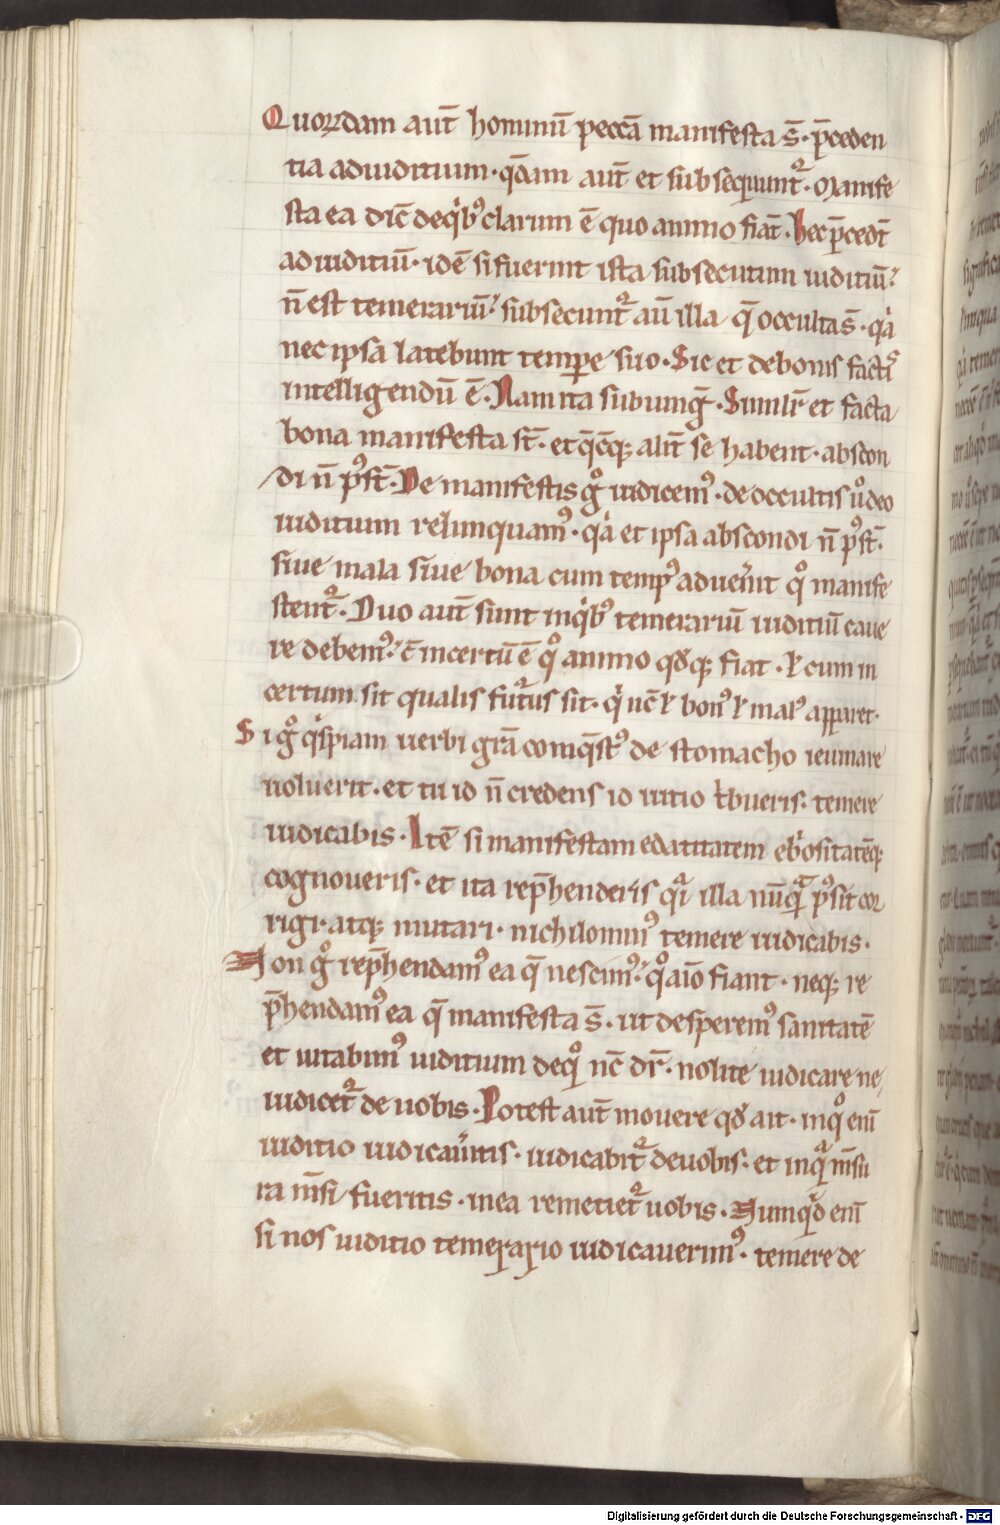 Quorꝝdam aut̄ hominū peccā manifesta s̄· p̄ceden
tia adiuditium· q̄dam aut̄ et subsequunt᷑· Manife
sta ea dic̄ deq̇bꝰ clarum ē quo animo fiāt· hec p̄cedt̄
adiuditiū· idē si fuerint ista subsecutum iuditiū·
n̄ est temerariū· subsecunt᷑ aū illa q̄ occulta s̄· qȧ
nec ipsa latebunt temꝑe suo· Sic et debonis factis
intelligendū ē· Nam ita subiungͥt· Similr̄ et facta
bona manifesta st̄· et q̄cq; alit̄ se habent· abscon
di n̄ pꝰst̄· De manifestis gͦ iudicemꝰ· de occultis ůdeo
iuditium relinquamꝰ· qȧ et ipsa abscondi n̄ pꝰst̄·
siue mala siue bona cum tempꝰ aduen̄it qͦ manife
stent᷑· Duo aut̄ sunt inq̇bꝰ temerariū iuditiū caue
re debemꝰ· c̄ incertū ē qͦ animo qd̄q; fiat· ł cum in
certum sit qualis fut᷑us sit· q̇ nc̄ ł bonꝰ ł malꝰ apparet·
Si gͦ q̇spiam uerbi gr̄a comq̄stꝰ de stomacho ieiunare
noluerit· et tu id n̄ credens id uitio t̄bueris· temere
iudicabis· Itē si manifestam edacitatem eb̓ositatēq;
cognoueris· et ita rep̄henderis qͣi illa nūqͣ pꝰsit cor
rigi· atq; mutari· nichilominꝰ temere iudicabis·
Non gͦ rep̄hendamꝰ ea q̄ nescimꝰ· qͦ aīo fiant· neq; re
p̄hendamꝰ ea q̄ manifesta s̄· ut desperemꝰ sanitatē
et uitabimꝰ iuditium deqͦ nc̄ dr̄· nolite iudicare ne
iudicet᷑ de uobis· Potest aut̄ mouere qd̄ ait· inqͦ enī
iuditio iudicau̓itis· iudicabit᷑ deuobis· et inqͣ m̄su
ra m̄si fueritis· inea remetiet᷑ uobis· Numqͥd enī
si nos iuditio temerario iudicauerimꝰ· temere de
Digitalisierung gefördert durch die Deutsche Forschungsgemeinschaft - DFG